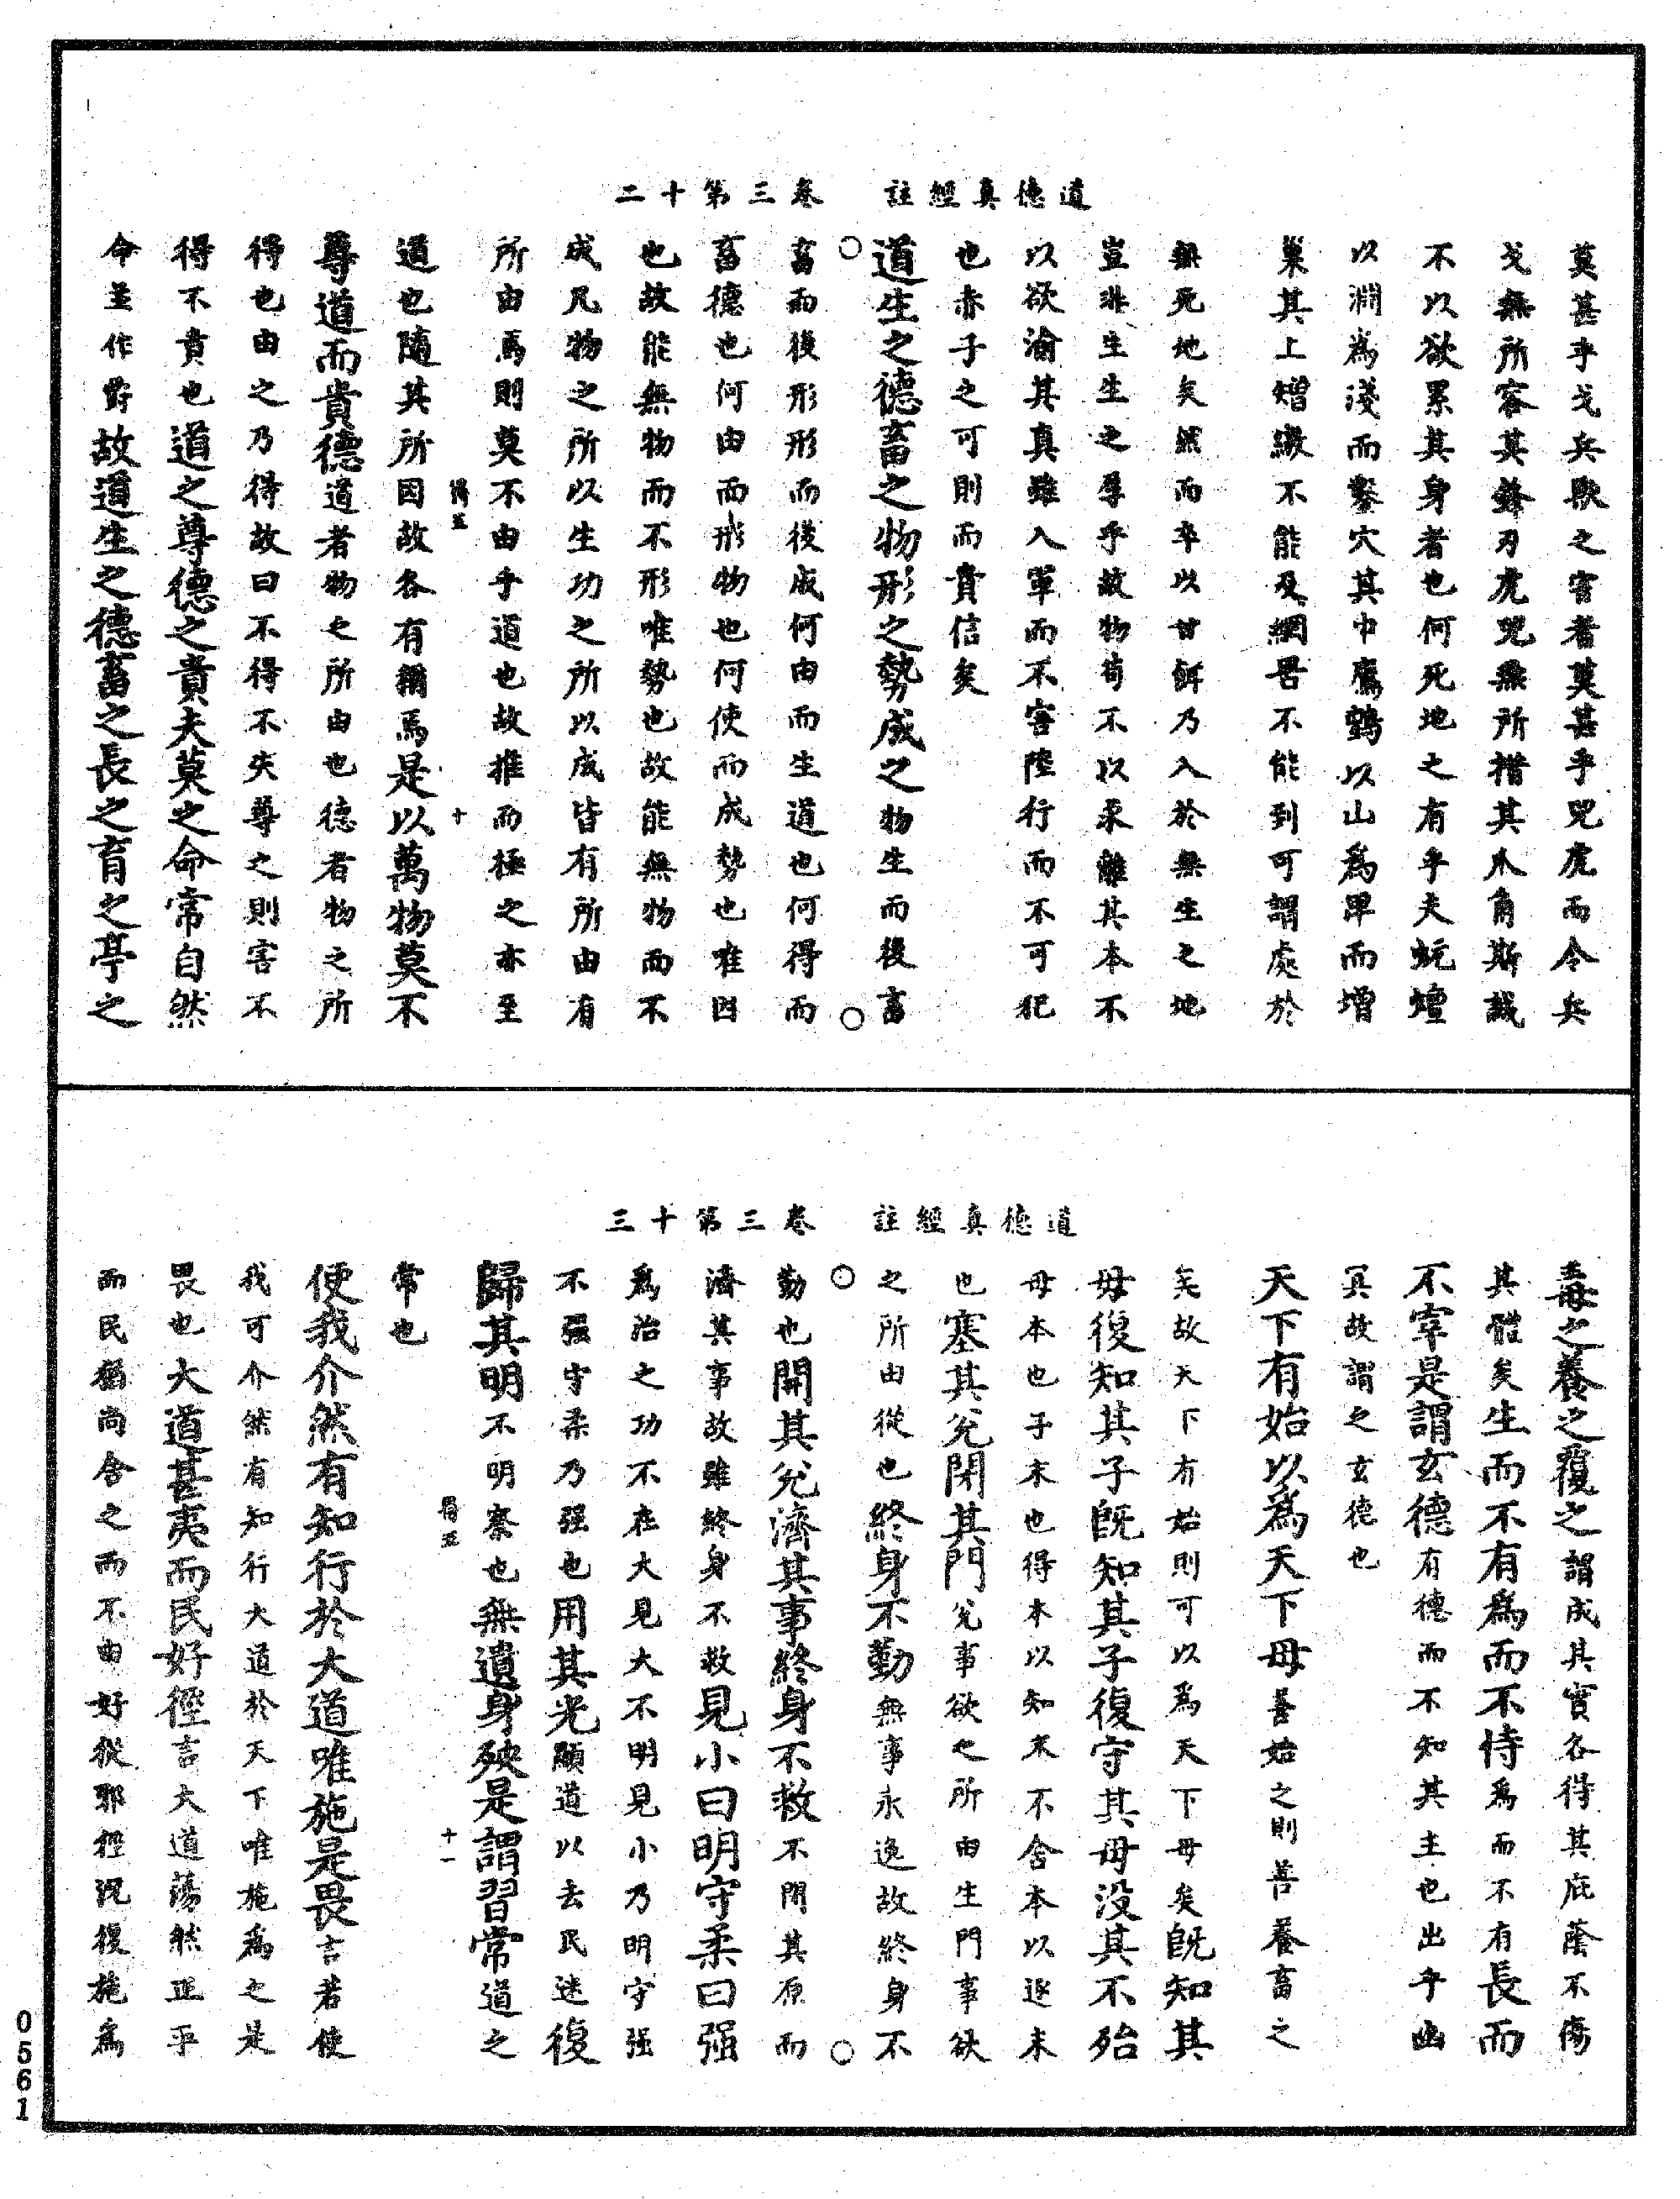 道德真經註　卷三第十二
莫甚乎戈兵獸之害者莫甚乎兕虎而令兵
戈無所容其鋒刃虎兕無所措其爪角斯誠
不以欲累其身者也何死地之有乎夫蚖蟺
以淵為淺而鑿穴其中鷹鸇以山為卑而增
巢其上矰繳不能及網罟不能到可謂處於
無死地矣然而卒以甘餌乃入於無生之地
豈非生生之厚乎故物苟不以求離其本不
以欲渝其真雖入軍而不害陸行而不可犯
也赤子之可則而貴信矣
○道生之德畜之物形之勢成之物生而後畜
畜而後形形而後成何由而生道也何得而
畜德也何由而形物也何使而成勢也唯因
也故能無物而不形唯勢也故能無物而不
成凡物之所以生功之所以成皆有所由有
所由焉則莫不由乎道也故推而極之亦至
得並　十
道也隨其所因故各有稱焉是以萬物莫不
尊道而貴德道者物之所由也德者物之所
得也由之乃得故曰不得不失尊之則害不
得不貴也道之尊德之貴夫莫之命常自然
命並作爵故道生之德畜之長之育之亭之
道德真經註　卷三第十三
毒之養之覆之謂成其實各得其庇蔭不傷
其體矣生而不有為而不恃為而不有長而
不宰是謂玄德有德而不知其主也出乎幽
冥故謂之玄德也
天下有始以為天下母善始之則善養畜之
矣故天下有始則可以為天下母矣既知其
母復知其子既知其子復守其母没其不殆
母本也子末也得本以知末不舍本以逐末
也塞其兌閉其門兌事欲之所由生門事欲
之所由從也終身不勤無事永逸故終身不
○勤也開其兌濟其事終身不救不閉其原而
濟其事故雖終身不救見小曰明守柔曰强
為治之功不在大見大不明見小乃明守强
不强守柔乃强也用其光顯道以去民迷復
歸其明不明察也無遺身殃是謂習常道之
得並　十一
常也
使我介然有知行於大道唯施是畏言若使
我可介然有知行大道於天下唯施為之是
畏也大道甚夷而民好徑言大道蕩然正平
而民猶尚舍之而不由好從邪徑況復施為
0561